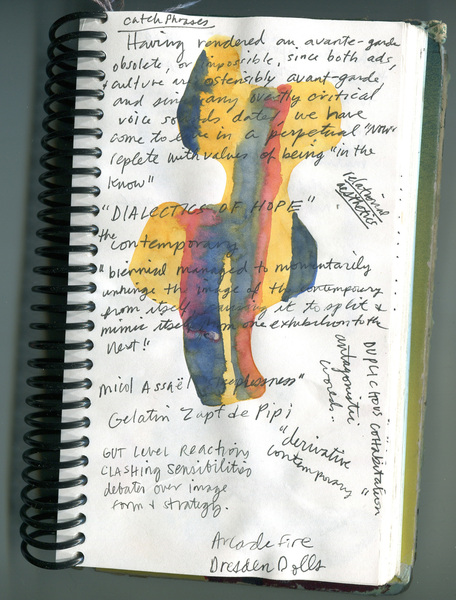 catch phrases
Having rendered an avante-garde
obsolete, or impossible, since both ads,
+ culture are ostensibly avant-garde
and since any overtly critical
voice sounds dated, we have
come to live in a perpetual "NOW"
replete with values of being "in the
know"
relational
aesthetics
"DIALECTICS OF HOPE"
the
contemporary
"biennial managed to momentarily
unhinge the image of the contemporary
from itself causing it to split &
mimic itself from one exhibition to the
next!"
DUPLICITOUS COHABITATION
antagonistic
worlds...
Micol Assaël "Sleeplessness"
Gelatin Zapf de Pipi
"derivative
contemporary"
GUT LEVEL REACTION,
CLASHING SENSIBILITIES
debates over image
form + strategy.
Arcade Fire
Dresden Dolls